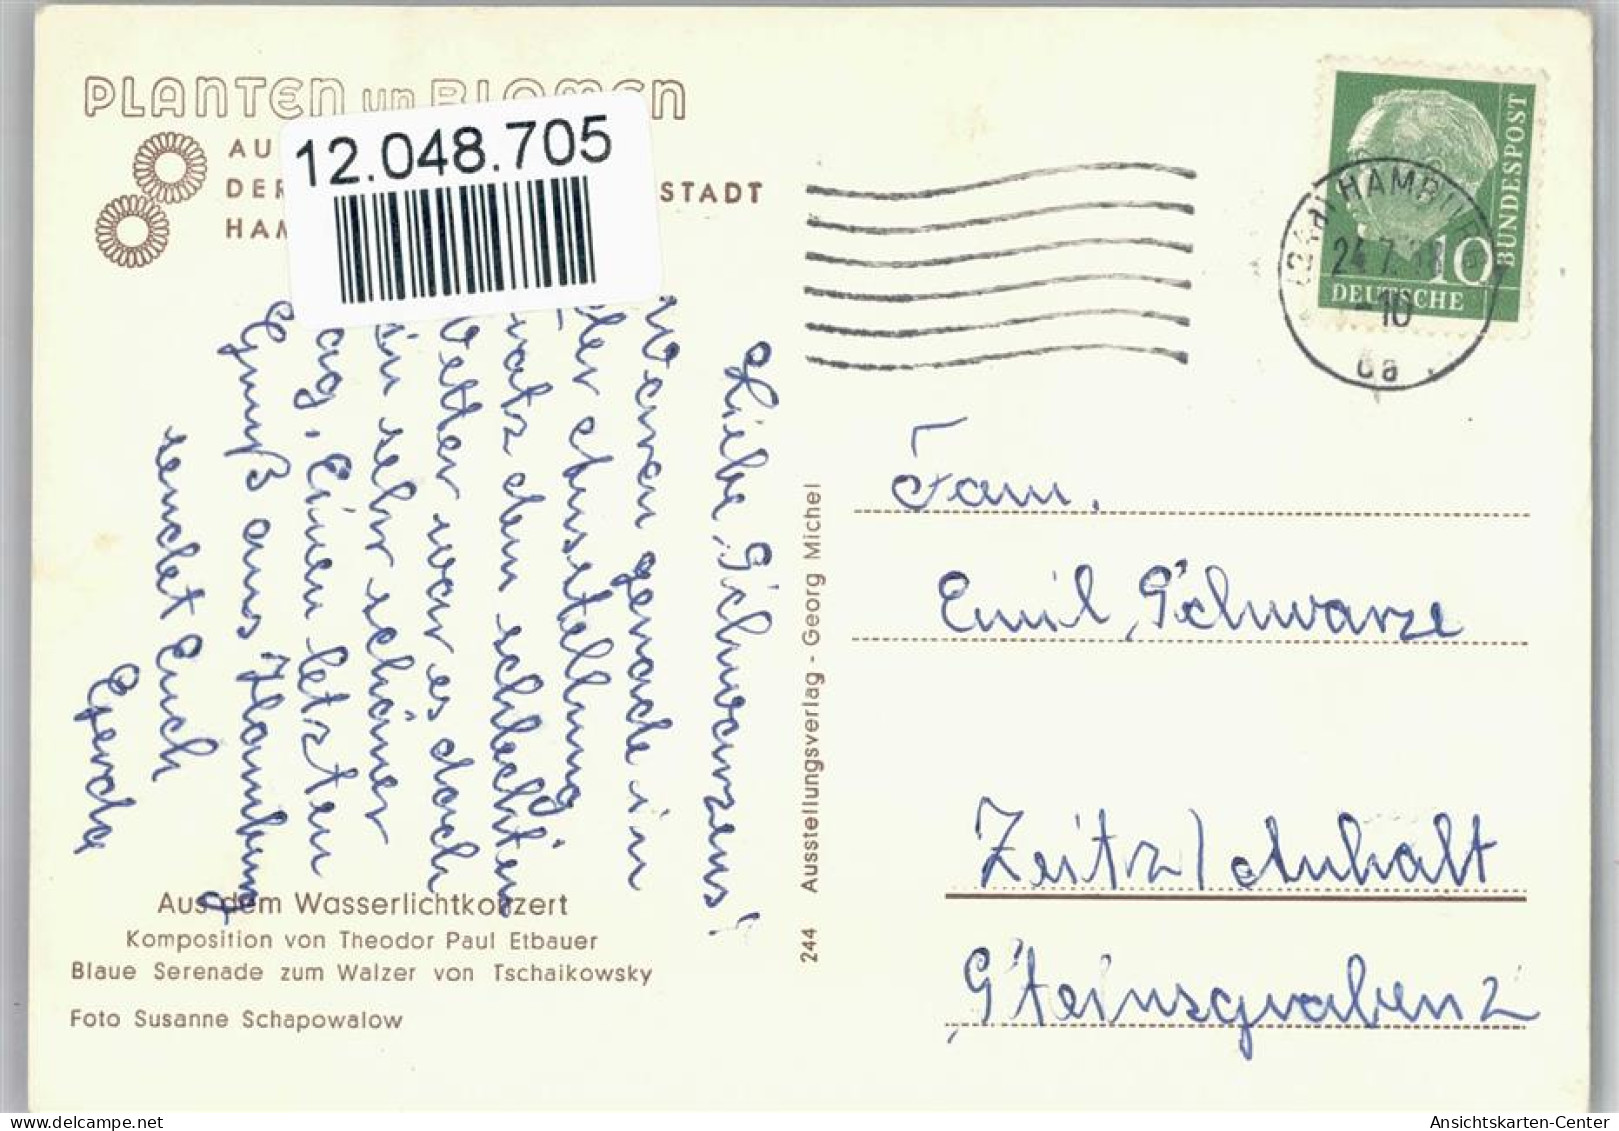 PLANTEN un BLOMEN
AU
DER STADT
HAM
12.048.705
Liebe Schwarzens!
Waren gerade in
der Ausstellung
trotz dem schlechten
Wetter war es doch
ein sehr schöner
Tag. Einen letzten
Gruß aus Hamburg
sendet Euch
Gerda
Aus dem Wasserlichtkonzert
Komposition von Theodor Paul Etbauer
Blaue Serenade zum Walzer von Tschaikowsky
Foto Susanne Schapowalow
244 Ausstellungsverlag - Georg Michel
BUNDESPOST
10
DEUTSCHE
(24a) HAMBURG
24.7.
-10
Fam.
Emil Schwarze
Zeitz/Anhalt
Steinsgraben 2
Ansichtskarten-Center